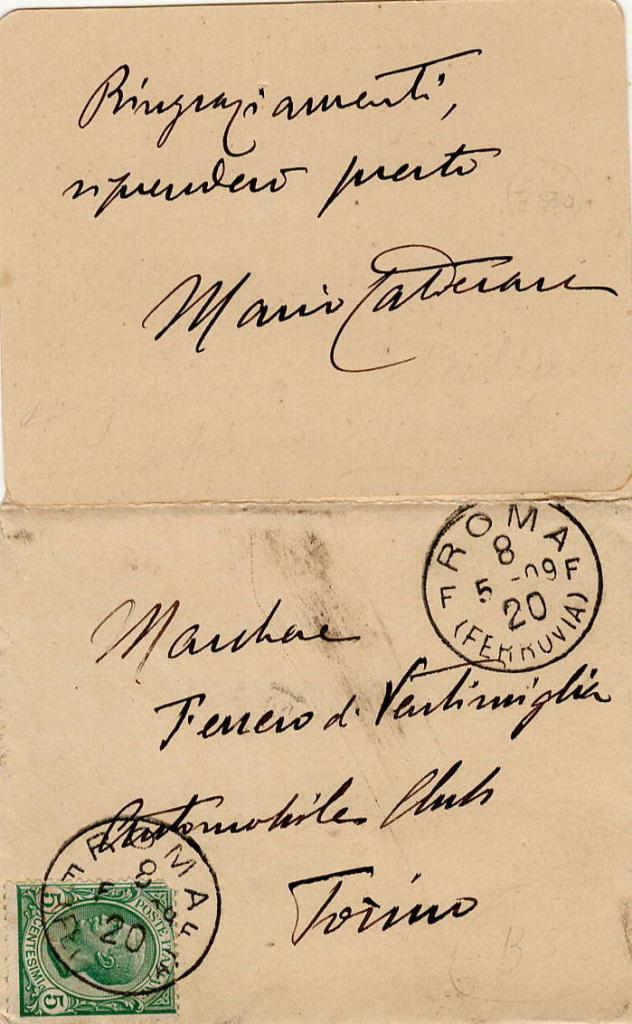 Ringraziamenti,
riprenderò presto
Mario Calderara
ROMA
8
5 - 09
F F
20
(FERROVIA)
Marchese
Ferrero di Ventimiglia
Automobile Club
Torino
ROMA
8
20
POSTE ITALIANE
CENTESIMI
5 5